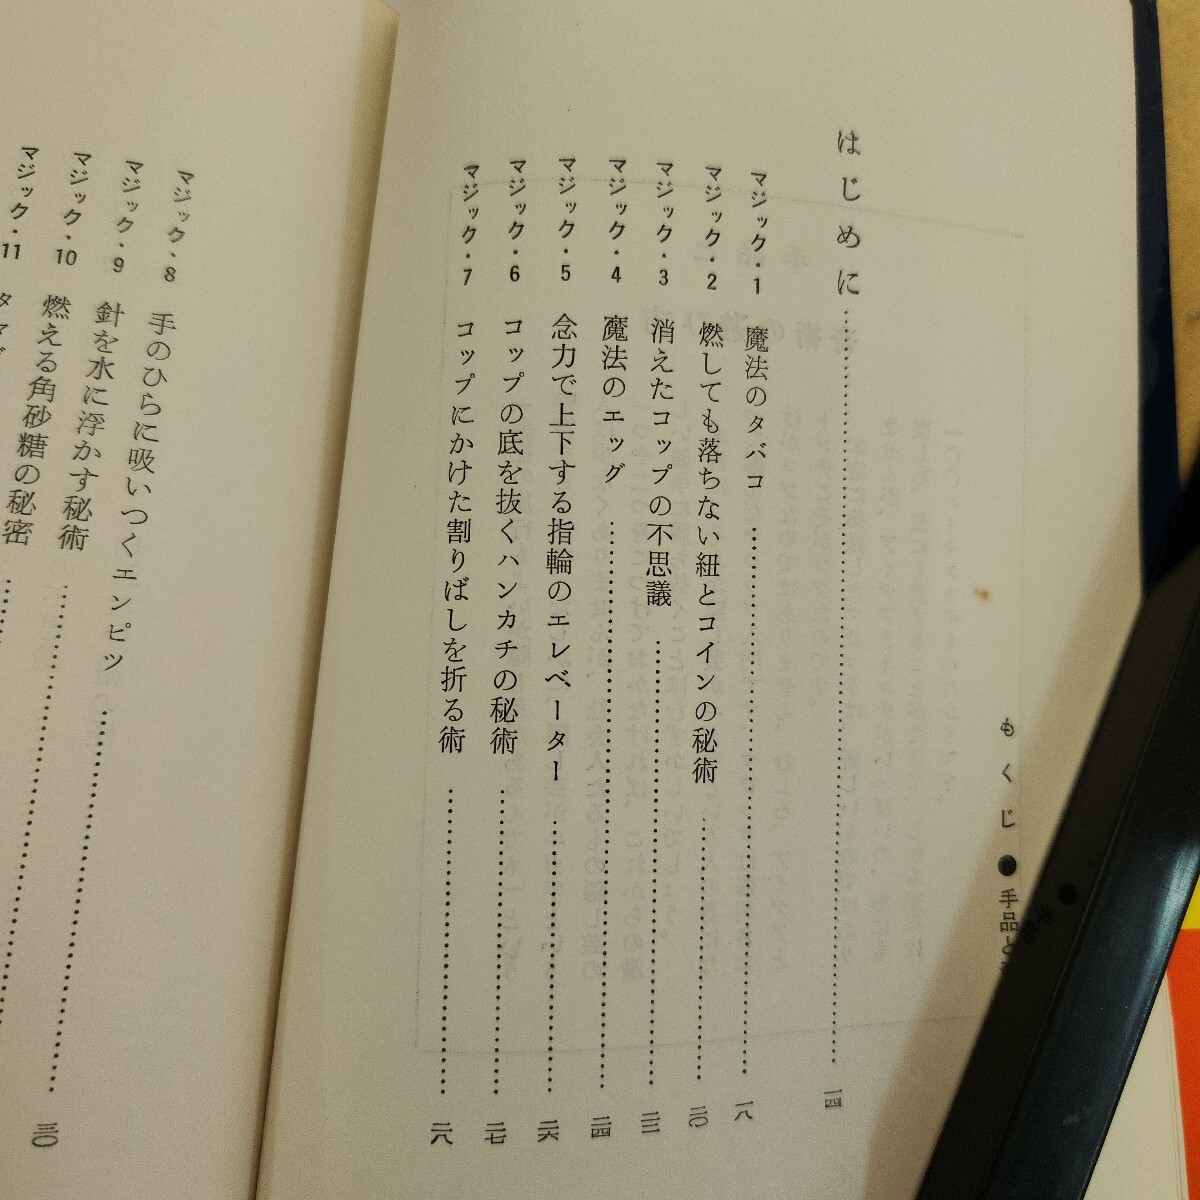 もくじ●手品と
はじめに……………一四
マジック・1 魔法のタバコ……………一八
マジック・2 燃しても落ちない紐とコインの秘術……………二〇
マジック・3 消えたコップの不思議……………二二
マジック・4 魔法のエッグ……………二四
マジック・5 念力で上下する指輪のエレベーター……………二六
マジック・6 コップの底を抜くハンカチの秘術……………二七
マジック・7 コップにかけた割りばしを折る術……………二八
マジック・8 手のひらに吸いつくエンピツ……………三〇
マジック・9 針を水に浮かす秘術……………
マジック・10 燃える角砂糖の秘密……………
マジック・11 タマゴ